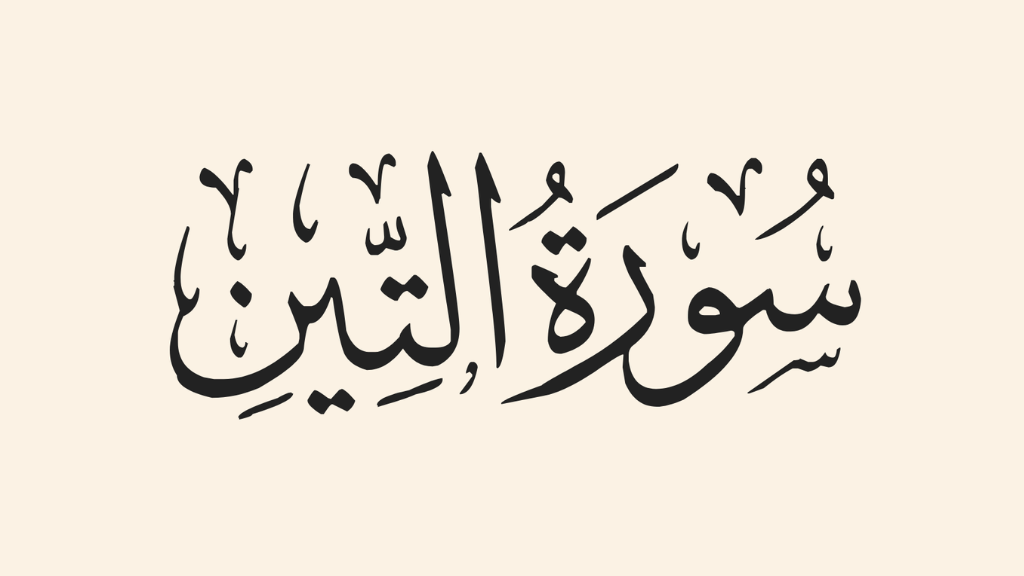 سُورَةُ التِّينِ